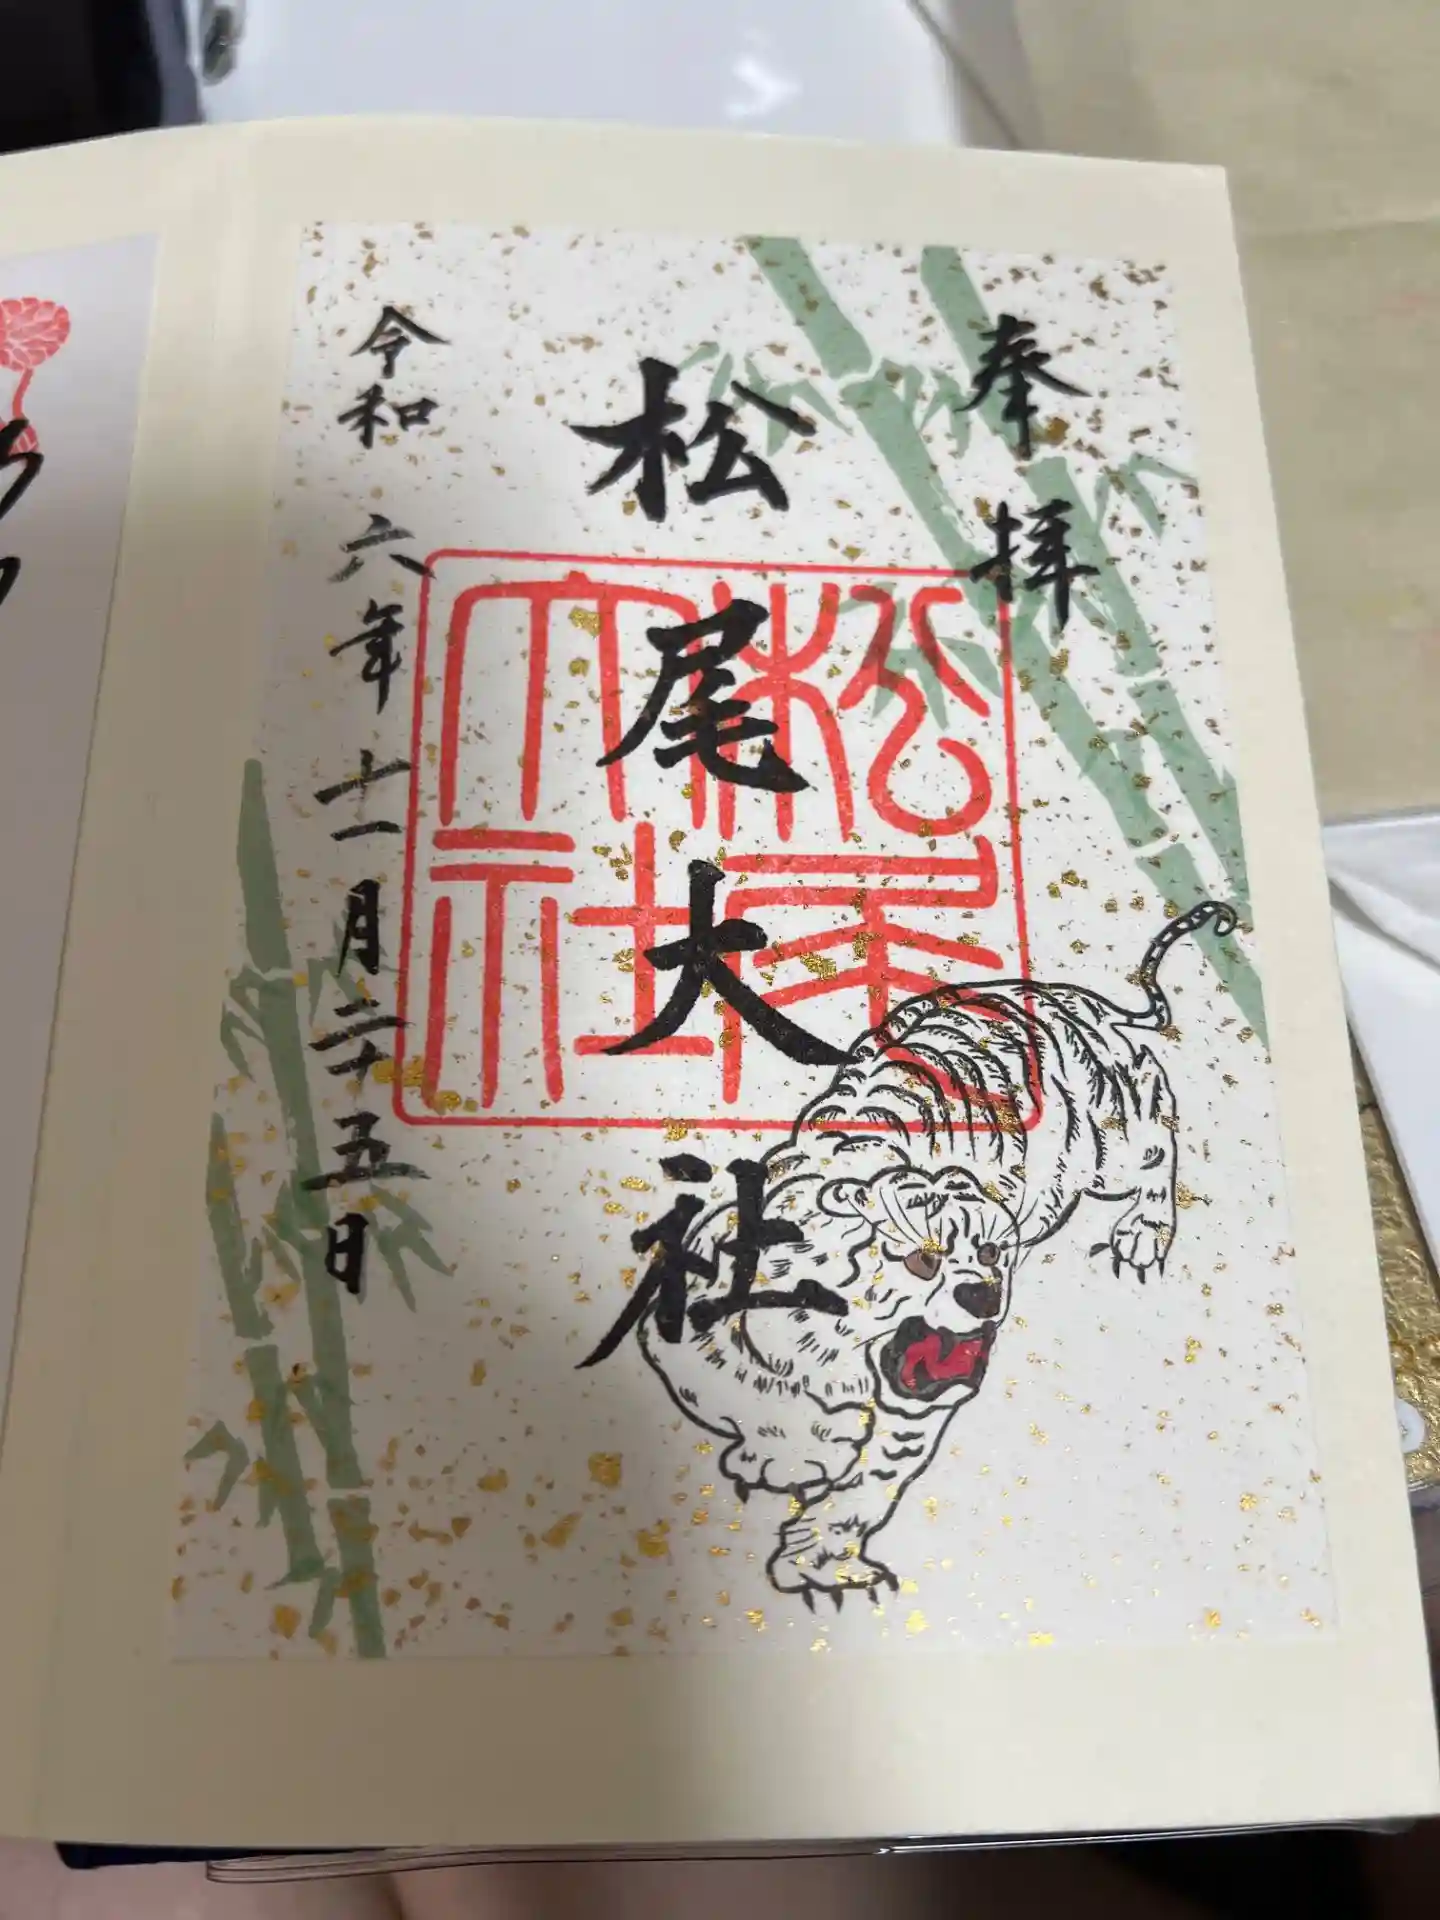 奉拝
松尾大社
松尾大社
令和六年十一月二十五日